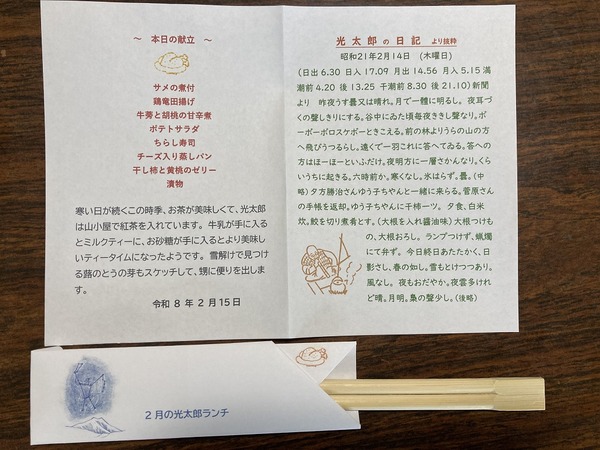 ～ 本日の献立 ～
サメの煮付
鶏竜田揚げ
牛蒡と胡桃の甘辛煮
ポテトサラダ
ちらし寿司
チーズ入り蒸しパン
干し柿と黄桃のゼリー
漬物
寒い日が続くこの時季、お茶が美味しくて、光太郎
は山小屋で紅茶を入れています。 牛乳が手に入る
とミルクティーに、お砂糖が手に入るとより美味し
いティータイムになったようです。 雪解けで見つけ
る蕗のとうの芽もスケッチして、甥に便りを出しま
す。
令和 8 年 2月15日
光太郎の日記 より抜粋
昭和21年2月14日 （木曜日）
（日出 6.30 日入 17.09 月出 14.56 月入 5.15 満
潮前 4.20 後 13.25 干潮前 8.30 後 21.10）新聞
より 昨夜うす曇又は晴れ。月で一體に明るし。夜耳づ
くの聲しきりにする。谷中にゐた頃毎夜ききし聲なり。ボ
ーボーボロスケボーときこえる。前の林よりうらの山の方
へ飛びうつるらし。遠くで一羽これに答へてゐる。答への
方はほーほーといふだけ。夜明方に一層さかんなり。くら
いうちに起きる。六時前か。寒くなし。氷はらず。曇。（中
略）夕方勝治さんゆう子ちやんと一緒に来らる。菅原さん
の手帳を返却。ゆう子ちやんに干柿一ツ。 夕食、白米
炊。鮫を切り煮肴とす。（大根を入れ醤油味）大根つけも
の、大根おろし。 ランプつけず、蝋燭
にて弁ず。 今日終日あたたかく、日
影さし、春の如し。雪もとけつつあり。
風なし。 夜もおだやか。夜雲多けれ
ど晴。月明。梟の聲少し。（後略）
2月の光太郎ランチ